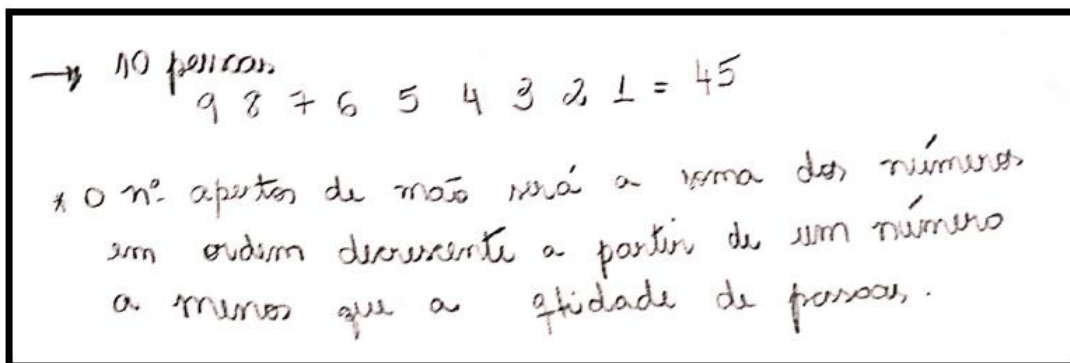 → 10 pessoas
9 8 7 6 5 4 3 2 1 = 45
* O nº apertos de mão será a soma dos números
em ordem decrescente a partir de um número
a menos que a qtidade de pessoas.